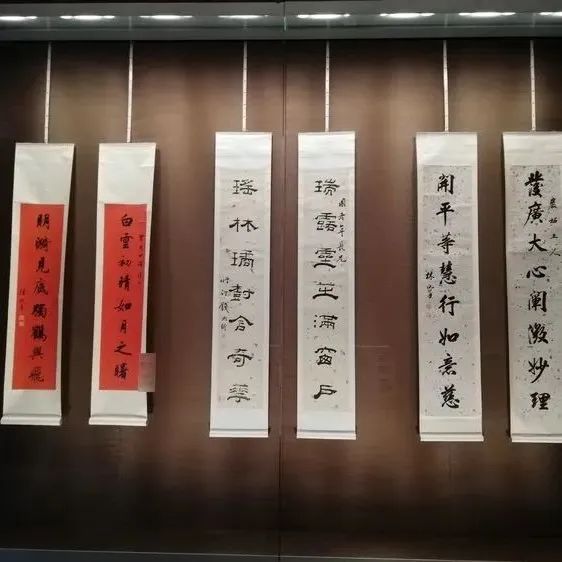 發廣大心闡微妙理
開平等慧行如意慈
瑞露靈芝滿窗戶
瑤林璚樹含奇華
白雲初晴如月之曙
明漪見底獨鶴與飛